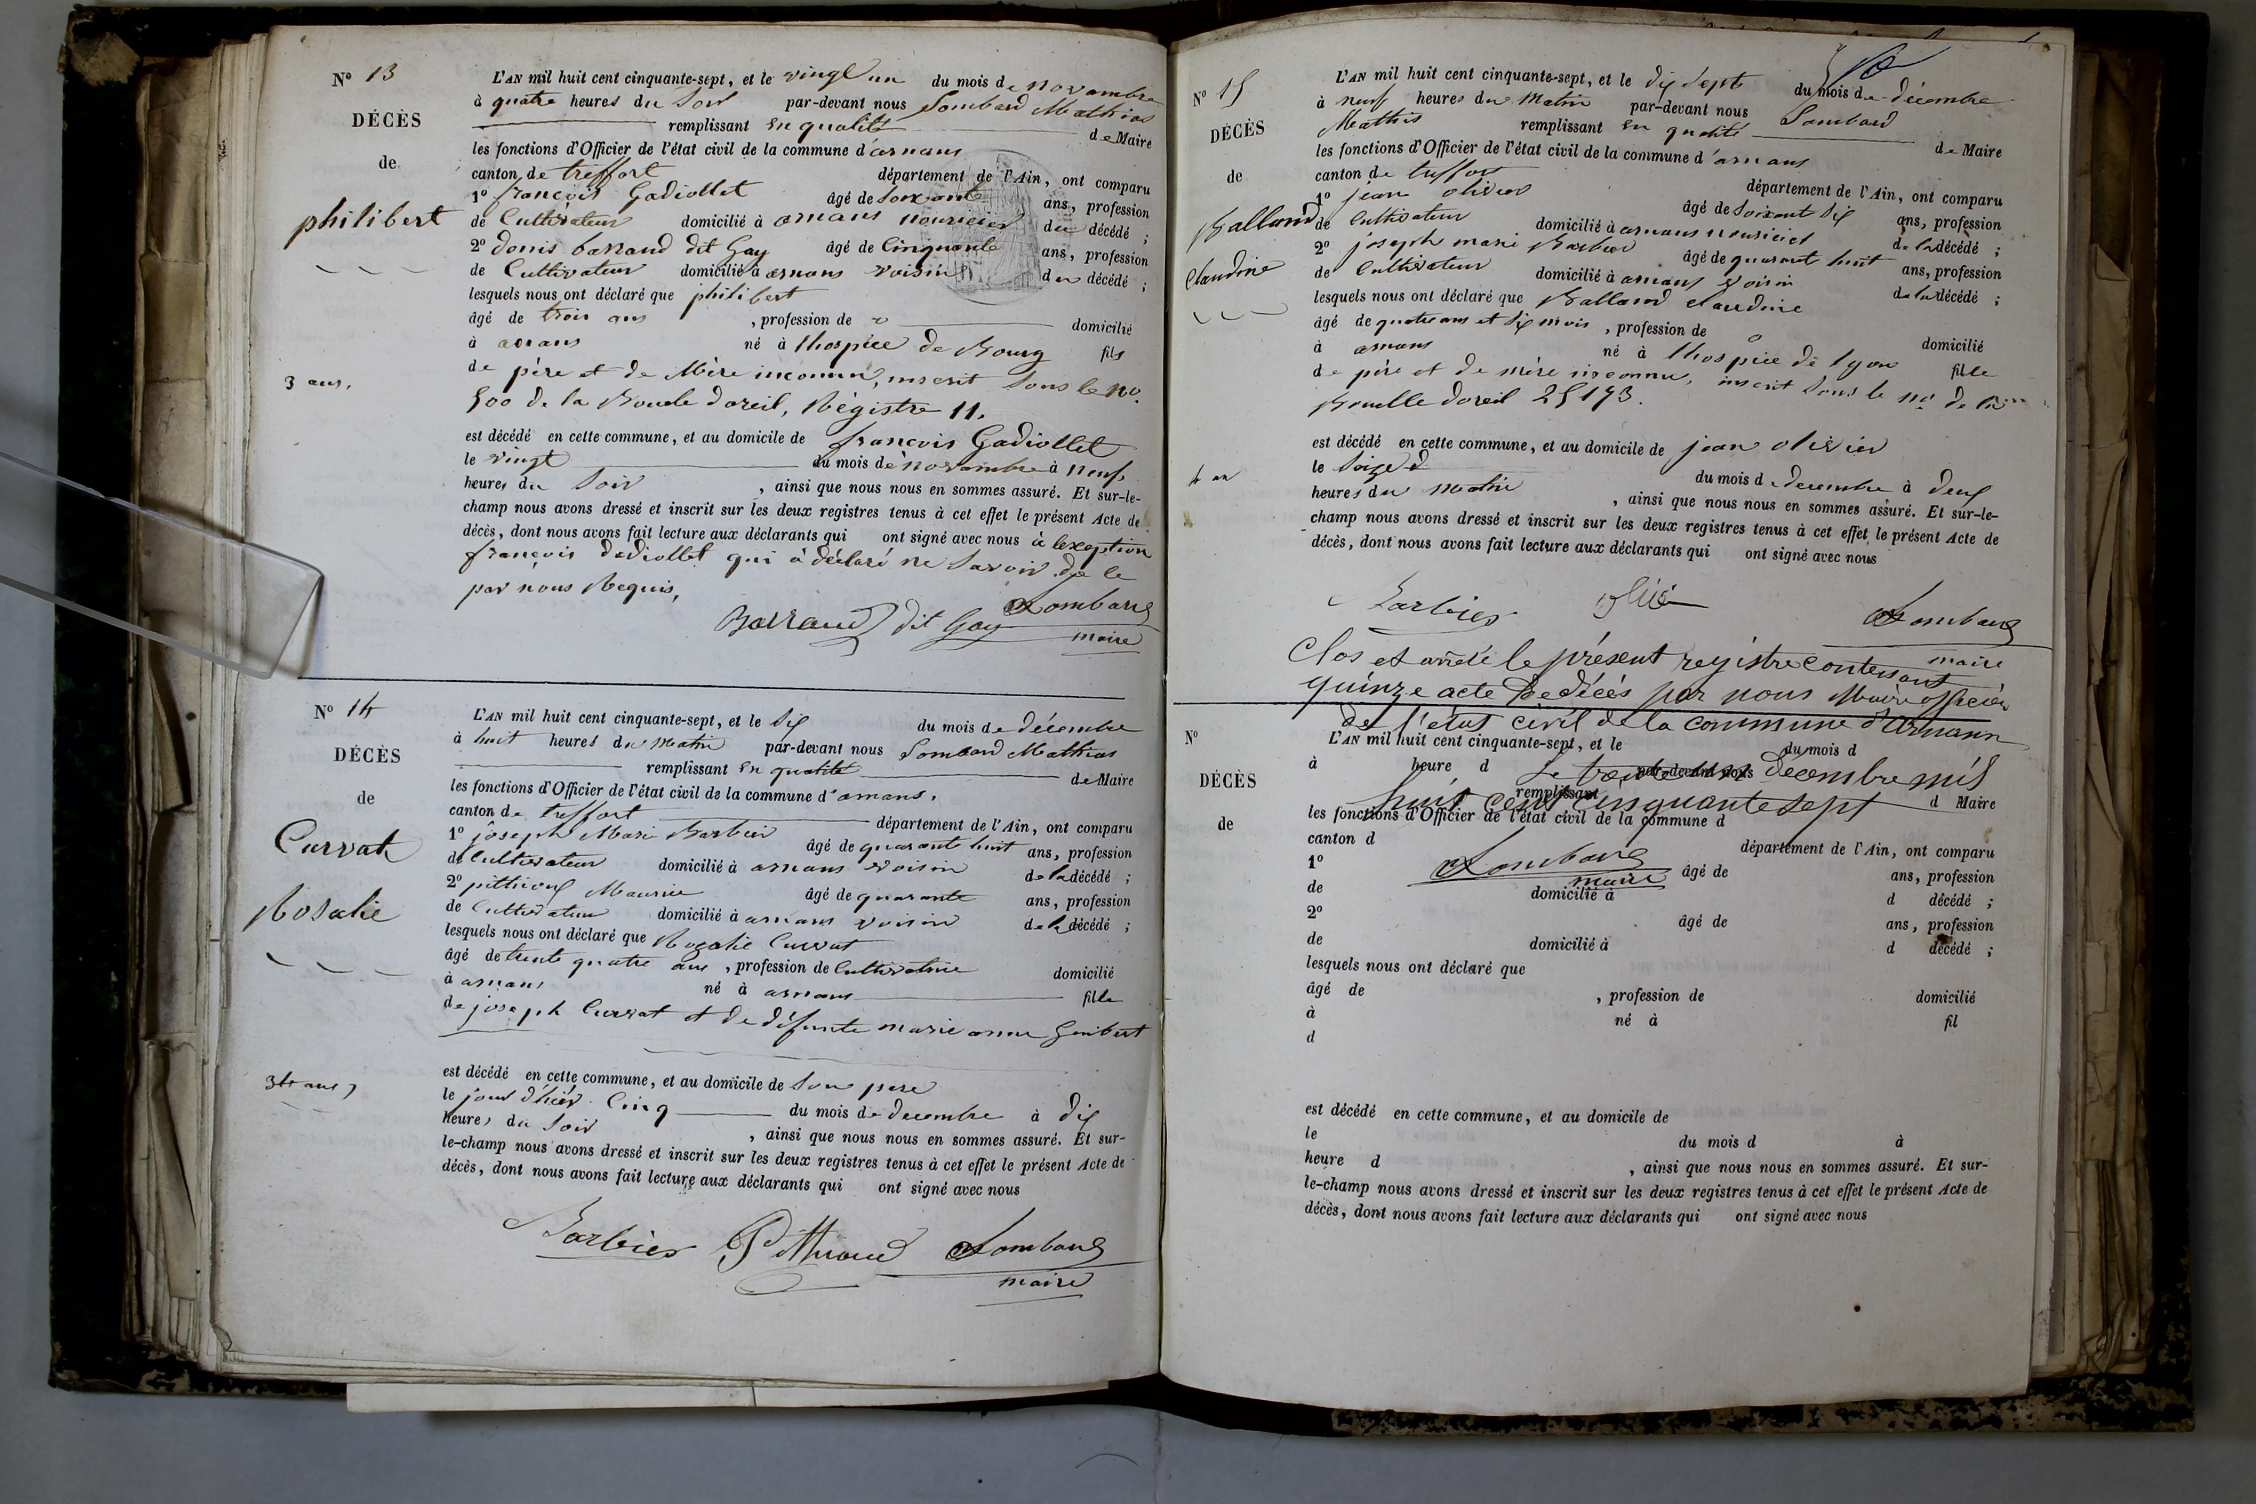 N° 13
DÉCÈS
de
philibert
3 ans,
L'AN mil huit cent cinquante-sept, et le vingt un du mois de novembre
à quatre heures du Soir par-devant nous Lombard Mathias
remplissant en qualité de Maire
les fonctions d'Officier de l'état civil de la commune d'arnans
canton de treffort département de l'Ain, ont comparu
1° françois Gadiollet âgé de Soixante ans, profession
de Cultivateur domicilié à arnans nouricier du décédé ;
2° denis barraud dit Gay âgé de Cinquante ans, profession
de Cultivateur domicilié à arnans voisin du décédé ;
lesquels nous ont déclaré que philibert
âgé de trois ans , profession de domicilié
à arnans né à lhospice de Bourg fils
de père et de Mère inconnu, inscrit Sous le no.
500 de la Boucle doreil, Régistre 11.
est décédé en cette commune, et au domicile de françois Gadiollet
le vingt du mois de novembre à neuf
heures du Soir , ainsi que nous nous en sommes assuré. Et sur-le-
champ nous avons dressé et inscrit sur les deux registres tenus à cet effet le présent Acte de
décès, dont nous avons fait lecture aux déclarants qui ont signé avec nous à lexception
françois Gadiollet qui à déclaré ne Savoir de ce
par nous Requis,
Barraud dit Gay Lombard
maire
N° 14
DÉCÈS
de
Curvat
Rosalie
34 ans,
L'AN mil huit cent cinquante-sept, et le Six du mois de décembre
à huit heures du matin par-devant nous Lombard Mathias
remplissant en qualité de Maire
les fonctions d'Officier de l'état civil de la commune d'arnans,
canton de treffort département de l'Ain, ont comparu
1° joseph Marie Barbier âgé de quarante huit ans, profession
de Cultivateur domicilié à arnans voisin de la décédé ;
2° pithioux Maurice âgé de quarante ans, profession
de Cultivateur domicilié à arnans voisin de la décédé ;
lesquels nous ont déclaré que Rozalie Curvat
âgé de trente quatre ans , profession de Cultivatrice domicilié
à arnans né à arnans fille
de joseph Curvat et de défunte marie anne Guibert
est décédé en cette commune, et au domicile de Son pere
le jour d'hier Cinq du mois de decembre à dix
heures du Soir , ainsi que nous nous en sommes assuré. Et sur-
le-champ nous avons dressé et inscrit sur les deux registres tenus à cet effet le présent Acte de
décès, dont nous avons fait lecture aux déclarants qui ont signé avec nous
Barbier Lombard
maire
N° 15
DÉCÈS
de
Balland
Claudine
4 an
L'AN mil huit cent cinquante-sept, et le dix Sept du mois de décembre
à neuf heures du Matin par-devant nous Lombard
Mathis remplissant en qualité de Maire
les fonctions d'Officier de l'état civil de la commune d'arnans
canton de treffort département de l'Ain, ont comparu
1° jean olivier âgé de Soixant dix ans, profession
de Cultivateur domicilié à arnans nouricier de la décédé ;
2° joseph marie Barbier âgé de quarant huit ans, profession
de Cultivateur domicilié à arnans voisin de la décédé ;
lesquels nous ont déclaré que Balland claudine
âgé de quatre ans et dix mois , profession de domicilié
à arnans né à lhospice de lyon fille
de père et de mère inconnu, inscrit Sous le no. de la
Boucle doreil 25173.
est décédé en cette commune, et au domicile de jean olivier
le Seize du mois de decembre à deux
heures du matin , ainsi que nous nous en sommes assuré. Et sur-le-
champ nous avons dressé et inscrit sur les deux registres tenus à cet effet le présent Acte de
décès, dont nous avons fait lecture aux déclarants qui ont signé avec nous
Barbier Lombard
maire
Clos et arrêté le présent registre contenant
quinze acte de décès par nous Maire officier
de l'état civil de la commune d'Arnans
Le trente un décembre mil
huit cent cinquante sept
Lombard
maire
N°
DÉCÈS
de
L'AN mil huit cent cinquante-sept, et le du mois d
à heure d par-devant nous
remplissant d Maire
les fonctions d'Officier de l'état civil de la commune d
canton d département de l'Ain, ont comparu
1° âgé de ans, profession
de domicilié à d décédé ;
2° âgé de ans, profession
de domicilié à d décédé ;
lesquels nous ont déclaré que
âgé de , profession de domicilié
à né à fil
d
est décédé en cette commune, et au domicile de
le du mois d à
heure d , ainsi que nous nous en sommes assuré. Et sur-
le-champ nous avons dressé et inscrit sur les deux registres tenus à cet effet le présent Acte de
décès, dont nous avons fait lecture aux déclarants qui ont signé avec nous